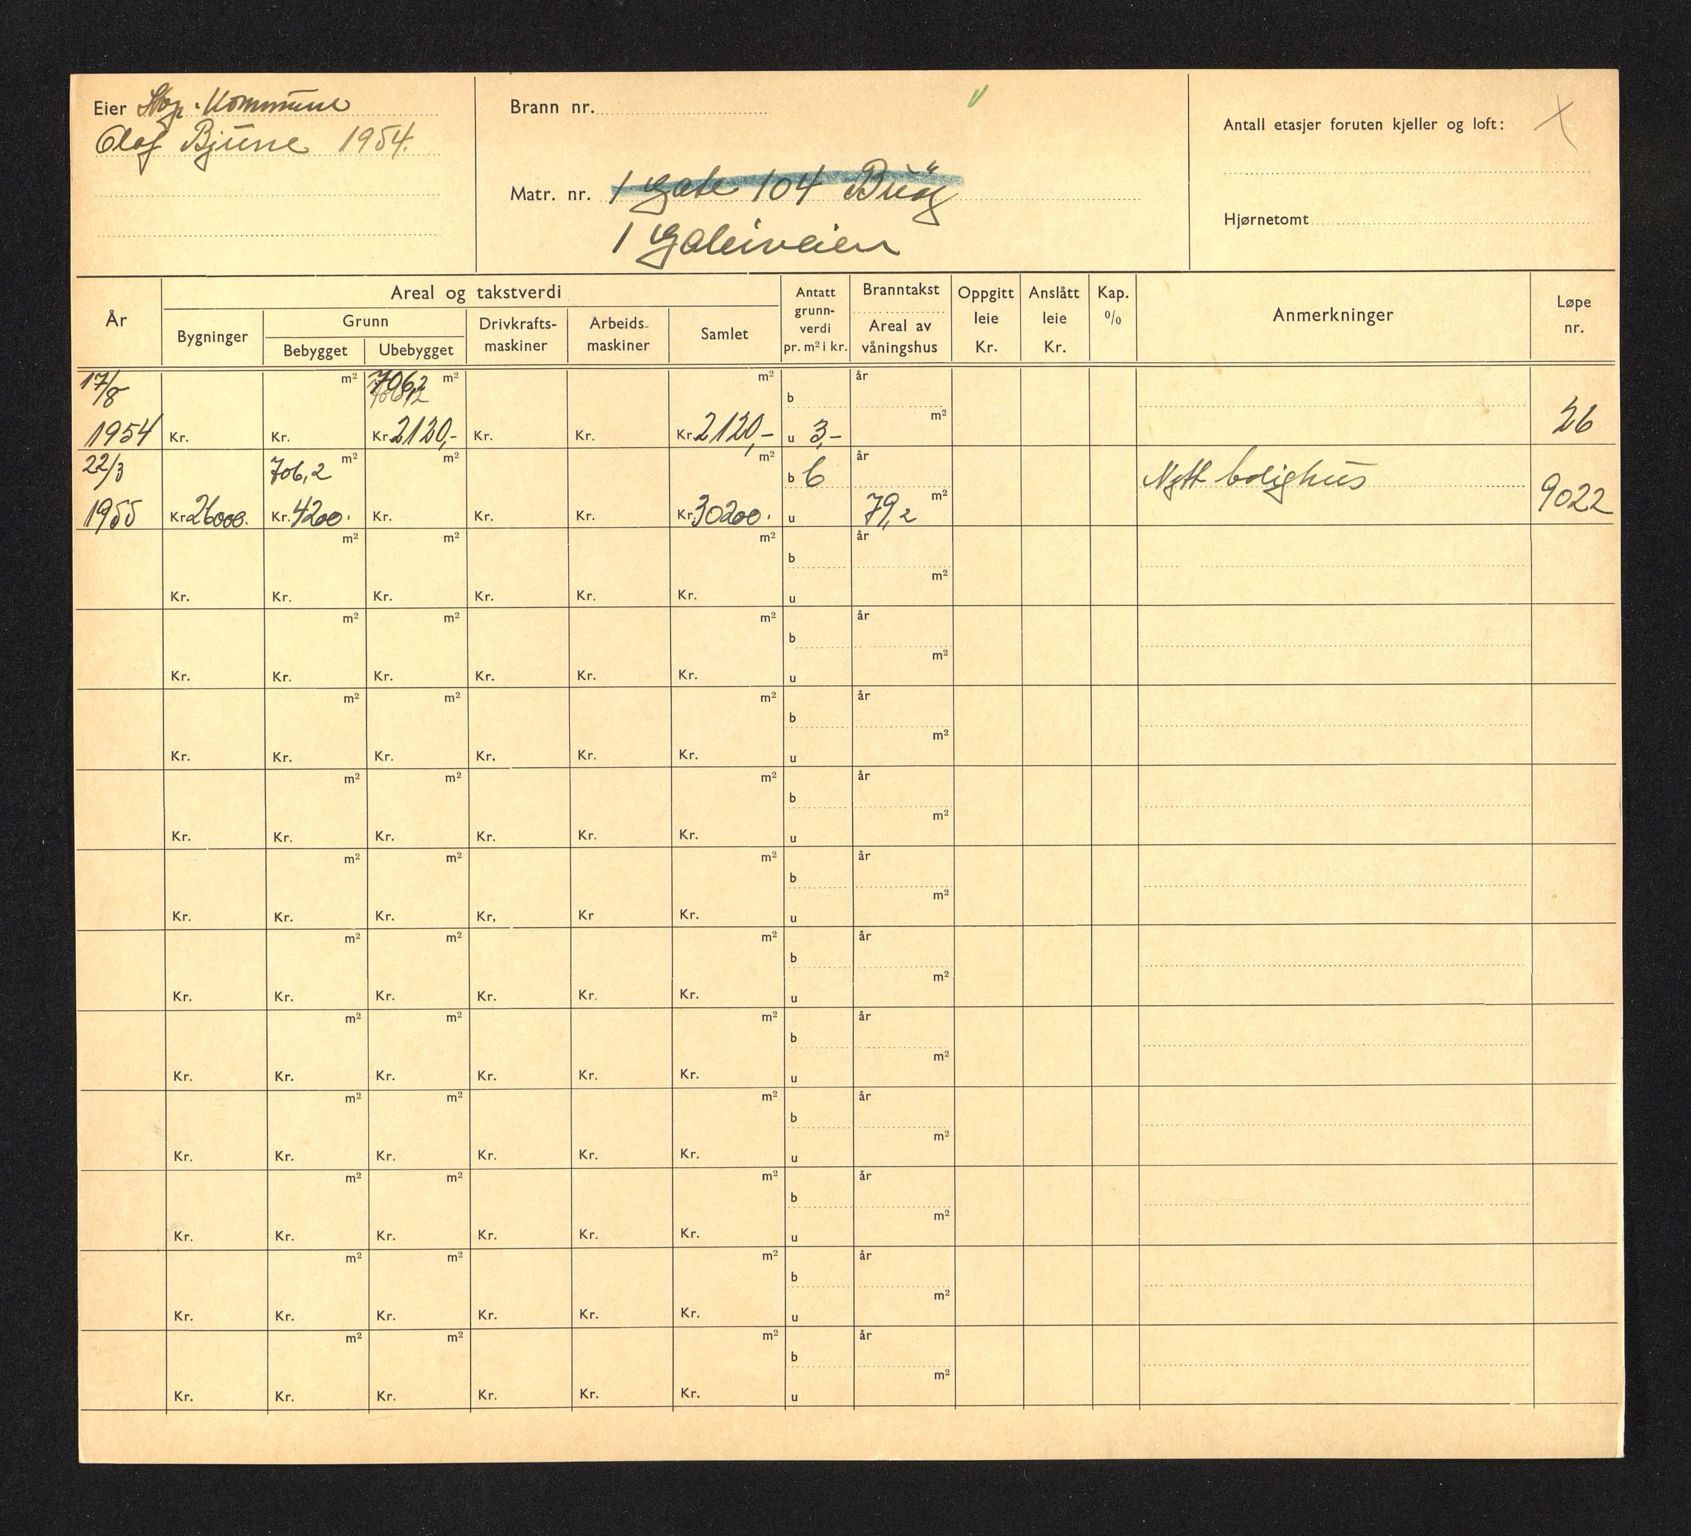 Eier Stvgr. Kommune
Olaf Bjune 1954.
Brann nr.
Matr. nr. 1 Gate 104 Buøy
1 Galeiveien
Antall etasjer foruten kjeller og loft:
Hjørnetomt
År
Areal og takstverdi
Bygninger
Grunn
Bebygget Ubebygget
Drivkrafts-
maskiner
Arbeids-
maskiner
Samlet
Antatt
grunn-
verdi
pr. m² i kr.
Branntakst
Areal av
våningshus
Oppgitt
leie
Kr.
Anslått
leie
Kr.
Kap.
%
Anmerkninger
Løpe
nr.
17/8 m² 706,2 m² m² b år
706,2
m²
1954 Kr. Kr. Kr. 2120,- Kr. Kr. Kr. 2120,- u 3,- 26
22/3 706,2 m² m² m² b 6 år Nytt bolighus
m²
1955 Kr. 26000. Kr. 4200. Kr. Kr. Kr. Kr. 30200. u 79,2 9022
m² m² m² b år
m²
Kr. Kr. Kr. Kr. Kr. Kr. u
m² m² m² b år
m²
Kr. Kr. Kr. Kr. Kr. Kr. u
m² m² m² b år
m²
Kr. Kr. Kr. Kr. Kr. Kr. u
m² m² m² b år
m²
Kr. Kr. Kr. Kr. Kr. Kr. u
m² m² m² b år
m²
Kr. Kr. Kr. Kr. Kr Kr. u
m² m² m² b år
m²
Kr. Kr. Kr. Kr. Kr. Kr. u
m² m² m² b år
m²
Kr. Kr. Kr. Kr. Kr. Kr. u
m² m² m² b år
m²
Kr. Kr. Kr. Kr. Kr. Kr. u
m² m² m² b år
m²
Kr. Kr. Kr. Kr. Kr. Kr. u
m² m² m² b år
m²
Kr. Kr. Kr. Kr. Kr. Kr. u
m² m² m² b år
m²
Kr. Kr. Kr. Kr. Kr. Kr. u